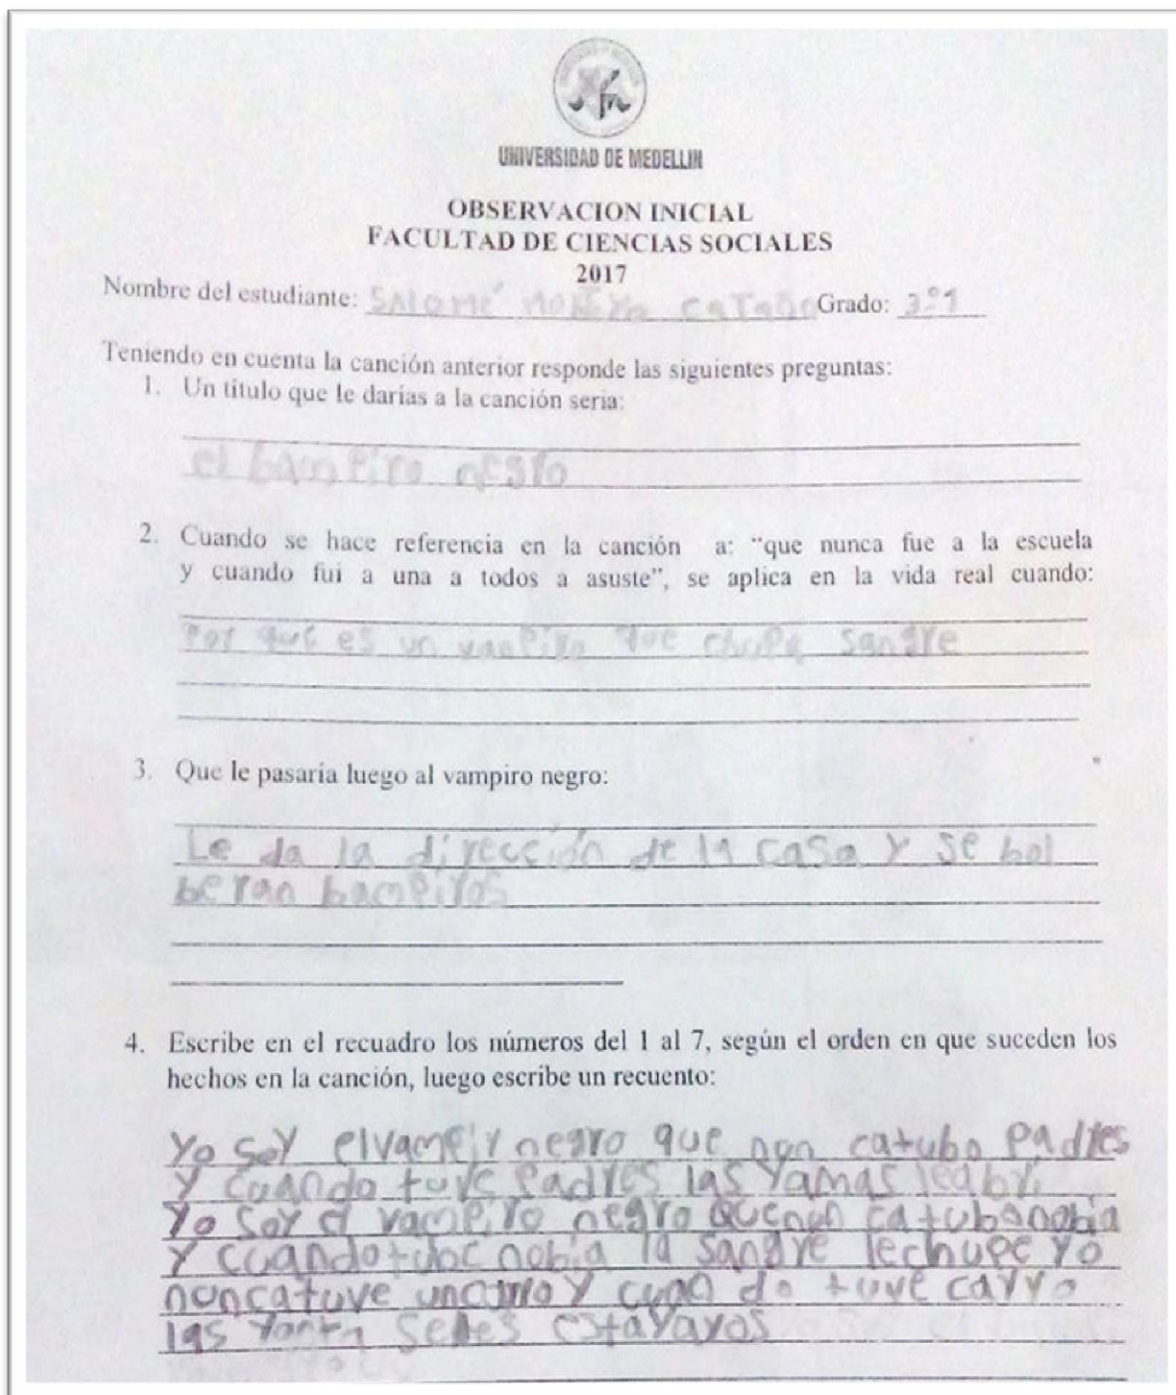 UNIVERSIDAD DE MEDELLIN
OBSERVACION INICIAL
FACULTAD DE CIENCIAS SOCIALES
2017
Nombre del estudiante: SALOMÉ CATAÑO Grado: 3°1
Teniendo en cuenta la canción anterior responde las siguientes preguntas:
1. Un título que le darías a la canción seria:
el bampiro negro
2. Cuando se hace referencia en la canción a: "que nunca fue a la escuela
y cuando fui a una a todos a asuste", se aplica en la vida real cuando:
Por que es un vanpiro que chupa sangre
3. Que le pasaría luego al vampiro negro:
Le da la dirección de la casa y se bol
beran bampiros
4. Escribe en el recuadro los números del 1 al 7, según el orden en que suceden los
hechos en la canción, luego escribe un recuento:
Yo soy elvampir negro que nun catubo padres
y cuando tuve padres las yamas leabri
Yo soy el vampiro negro quenun catubonobia
y cuandotube nobia la sangre lechupe yo
nuncatuve y cuan do tuve carro
las estayayos